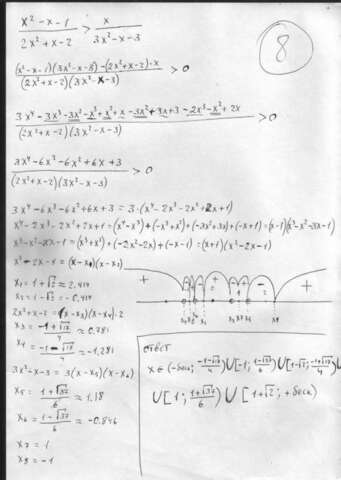 x² - x - 1 / 2x² + x - 2 > x / 3x² - x - 3
8
(x²-x-1)(3x²-x-3) - (2x²+x-2)·x / (2x²+x-2)(3x²-x-3) > 0
3x⁴ - 3x³ - 3x² - x³ + x² + x - 3x² + 3x + 3 - 2x³ - x² + 2x / (2x²+x-2)(3x²-x-3) > 0
3x⁴ - 6x³ - 6x² + 6x + 3 / (2x²+x-2)(3x²-x-3) > 0
3x⁴ - 6x³ - 6x² + 6x + 3 = 3·(x⁴ - 2x³ - 2x² + 2x + 1)
x⁴ - 2x³ - 2x² + 2x + 1 = (x⁴ - x³) + (-x³ + x²) + (-3x² + 3x) + (-x + 1) = (x-1)(x³ - x² - 3x - 1)
x³ - x² - 3x - 1 = (x³ + x²) + (-2x² - 2x) + (-x - 1) = (x+1)(x² - 2x - 1)
x² - 2x - 1 = (x - x₁)(x - x₂)
x₁ = 1 + √2 ≈ 2.414
x₂ = 1 - √2 = -0.414
2x² + x - 2 = (x - x₃)(x - x₄)·2
x₃ = -1 + √17 / 4 ≈ 0.781
x₄ = -1 - √17 / 4 ≈ -1.281
3x² - x - 3 = 3(x - x₅)(x - x₆)
x₅ = 1 + √37 / 6 ≈ 1.18
x₆ = 1 - √37 / 6 ≈ -0.846
x₇ = 1
x₈ = -1
ответ
x ∈ (-беск; -1-√17 / 4) ∪ [-1; 1-√37 / 6) ∪ [1-√2; -1+√17 / 4)
∪ [1; 1+√37 / 6) ∪ [1+√2; +беск)